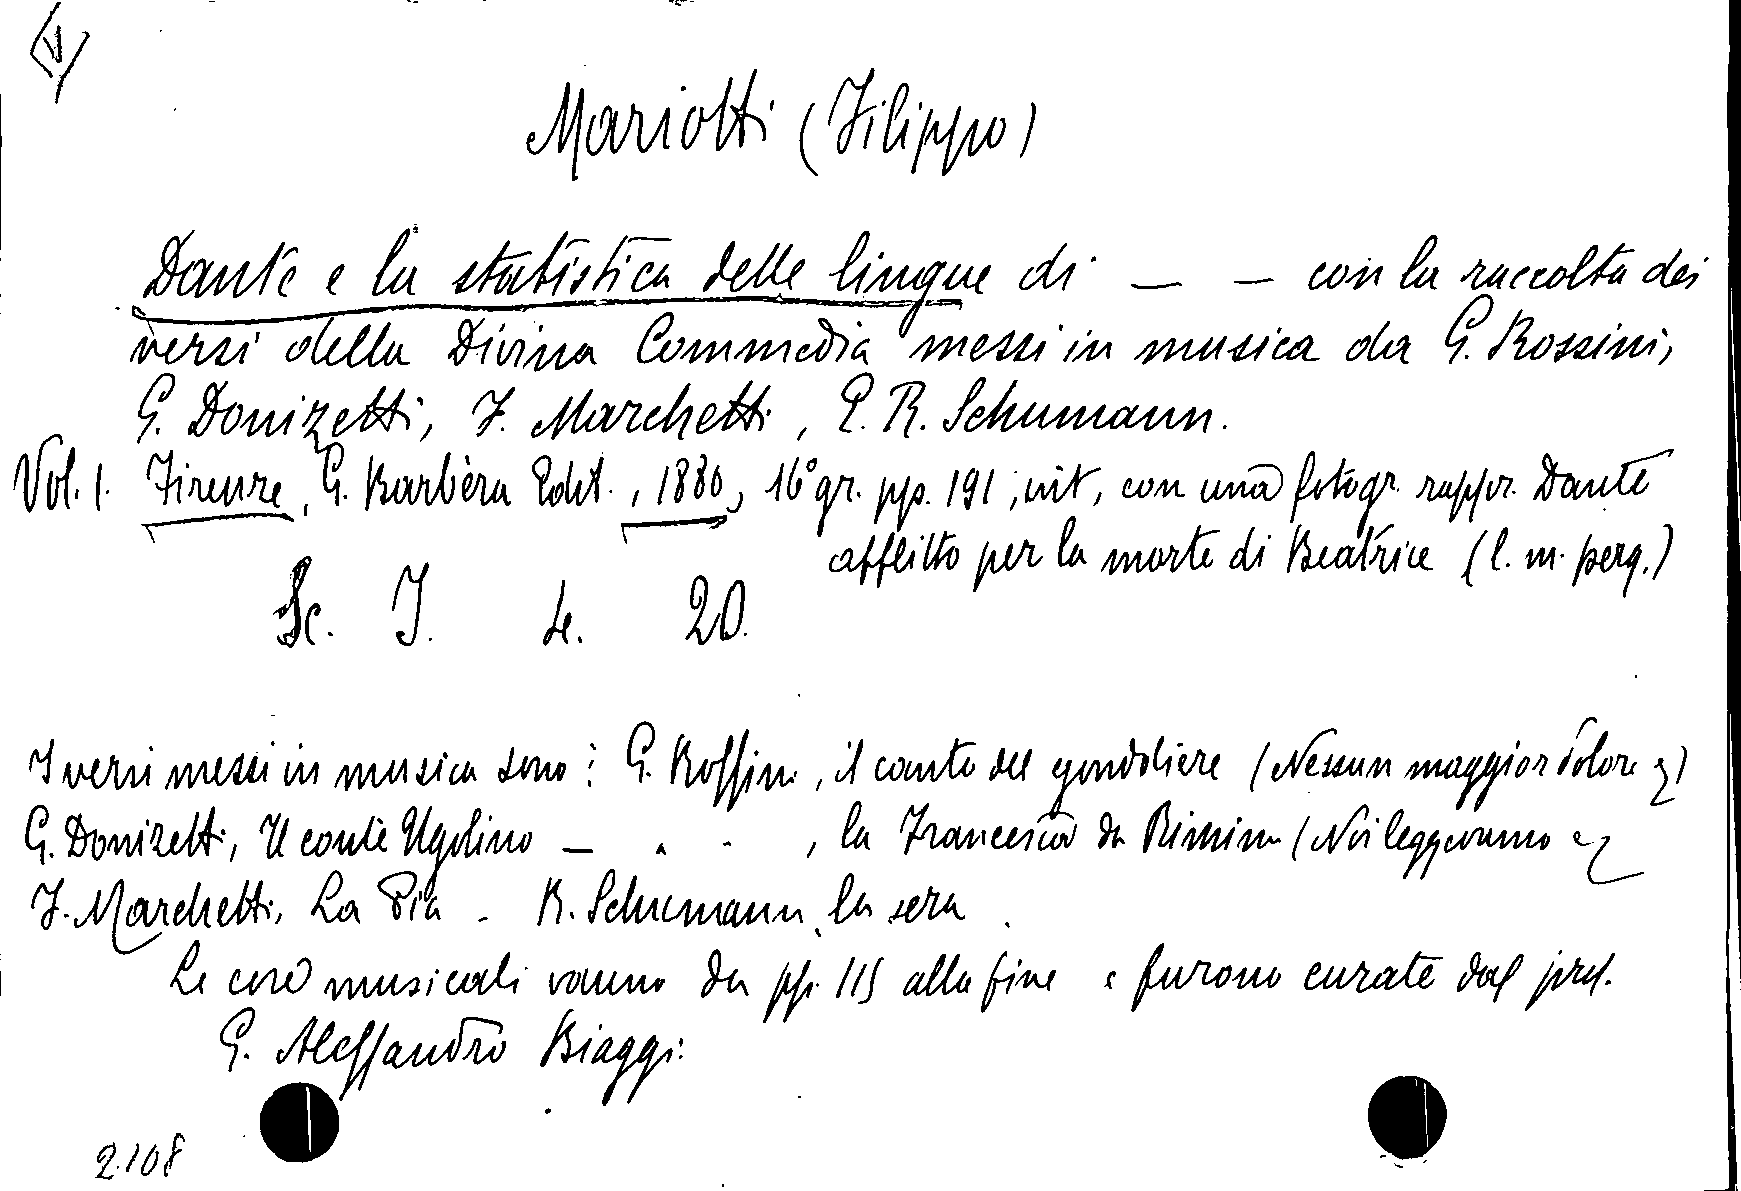 Mariotti (Filippo)
Dante e la statistica delle lingue di — — con la raccolta dei
versi della Divina Commedia messi in musica da G. Rossini,
G. Donizetti, F. Marchetti, E. R. Schumann.
Vol. 1. Firenze, G. Barbèra Edit., 1880, 16° gr. pp. 191, con una fotogr. rappr. Dante
afflitto per la morte di Beatrice (l. m. perg.)
Sc. I. 4. 20.
I versi messi in musica sono: G. Rossini, il canto del gondoliere (Nessun maggior dolore)
G. Donizetti, Il conte Ugolino — , la Francesca da Rimini (Noi leggevamo
F. Marchetti, La Pia - R. Schumann, la sera
Le cose musicali vanno da pp. 115 alla fine e furono curate dal prof.
G. Alessandro Biaggi.
2108